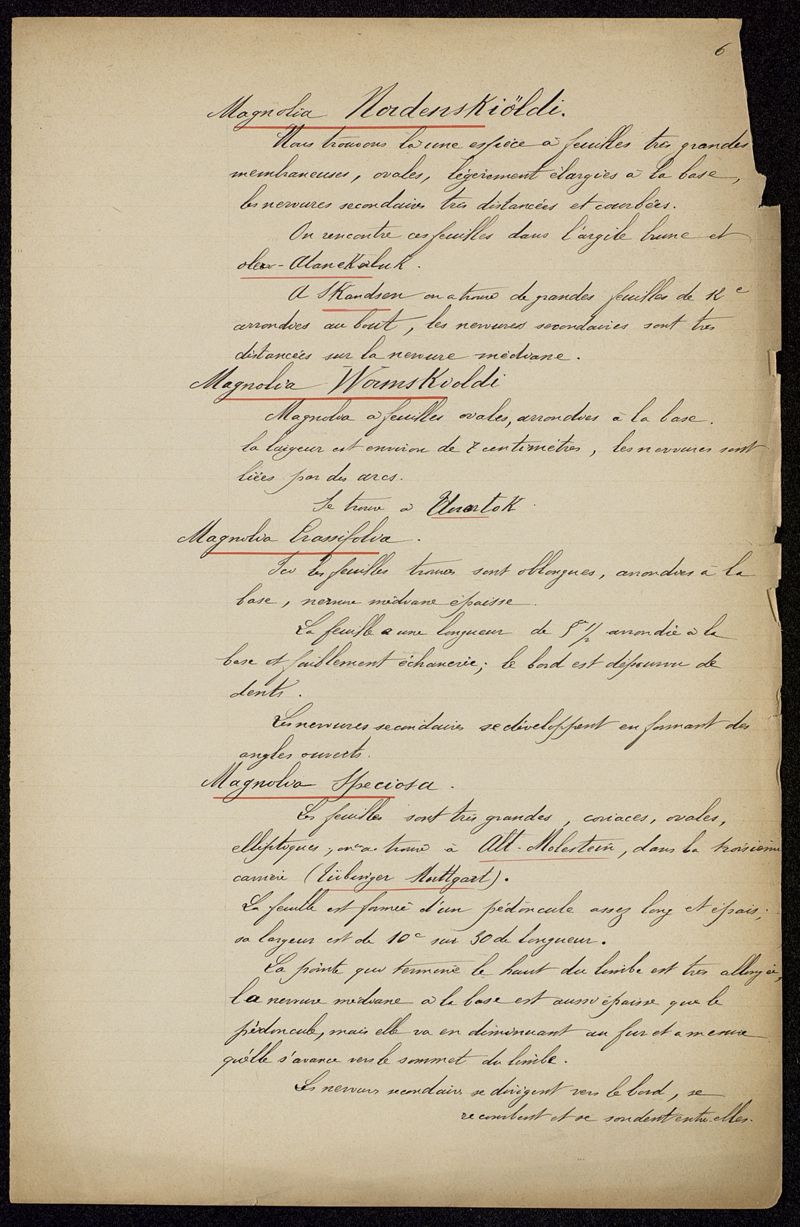 6
Magnolia Nordenskiöldi.
Nous trouvons là une espèce à feuilles très grandes
membraneuses, ovales, légèrement élargies à la base,
les nervures secondaires très distancées et courbées.
On rencontre ces feuilles dans l'argile brune et
Atanekaluk.
A Skandsen on a trouvé de grandes feuilles de 12 c
arrondies au bout, les nervures secondaires sont très
distancées sur la nervure médiane.
Magnolia Wormskioldi
Magnolia à feuilles ovales, arrondies à la base.
la largeur est environ de 7 centimètres, les nervures sont
liées par des arcs.
Se trouve à
Magnolia Crassifolia.
Ici les feuilles trouvées sont oblongues, arrondies à la
base, nervure médiane épaisse.
La feuille a une longueur de 5 c 1/2 arrondie à la
base et faiblement échancrée; le bord est dépourvu de
dents.
Les nervures secondaires se développent en formant des
angles ouverts.
Magnolia Speciosa.
Les feuilles sont très grandes, coriaces, ovales,
elliptiques; on a trouvé à Alt-Moletein, dans la troisième
carrière (Tübinger Stuttgart).
La feuille est formée d'un pédoncule assez long et épais;
sa largeur est de 10 c sur 30 de longueur.
La pointe qui termine le haut du limbe est très allongée,
la nervure médiane à la base est aussi épaisse que le
pédoncule, mais elle va en diminuant au fur et à mesure
qu'elle s'avance vers le sommet du limbe.
Les nervures secondaires se dirigent vers le bord, se
recourbent et se soudent entre-elles.